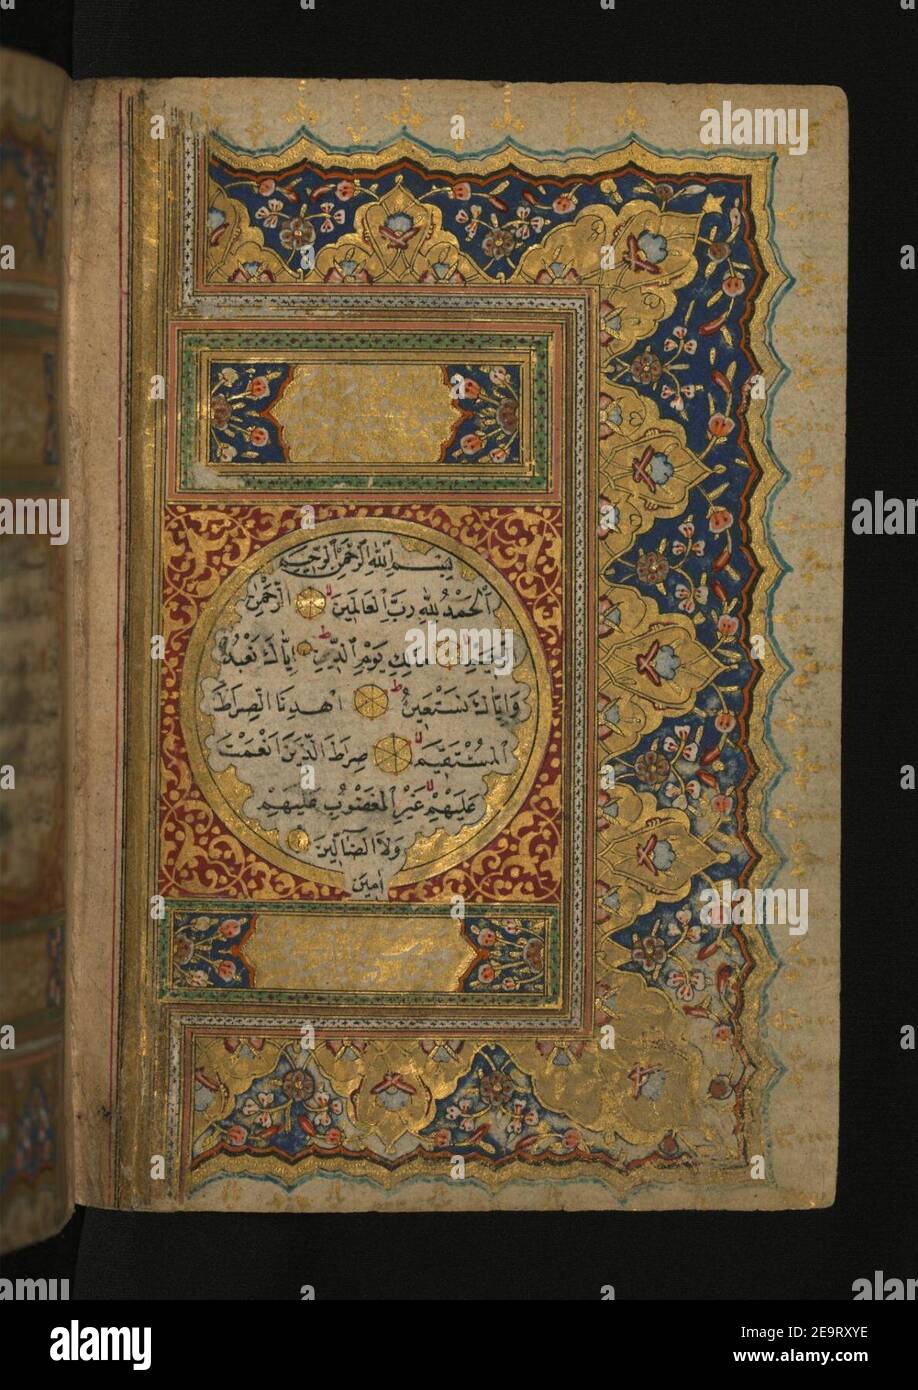 بِسْمِ اللهِ الرَّحْمٰنِ الرَّحِيمِ
اَلْحَمْدُ لِلّٰهِ رَبِّ الْعَالَمِينَ الرَّحْمٰنِ
الرَّحِيمِ مَالِكِ يَوْمِ الدِّينِ اِيَّاكَ نَعْبُدُ
وَاِيَّاكَ نَسْتَعِينُ اِهْدِنَا الصِّرَاطَ
الْمُسْتَقِيمَ صِرَاطَ الَّذِينَ اَنْعَمْتَ
عَلَيْهِمْ غَيْرِ الْمَغْضُوبِ عَلَيْهِمْ
وَلَا الضَّالِّينَ
اٰمِين
alamy
alamy
alamy
Image ID: 2E9RXYE
www.alamy.com